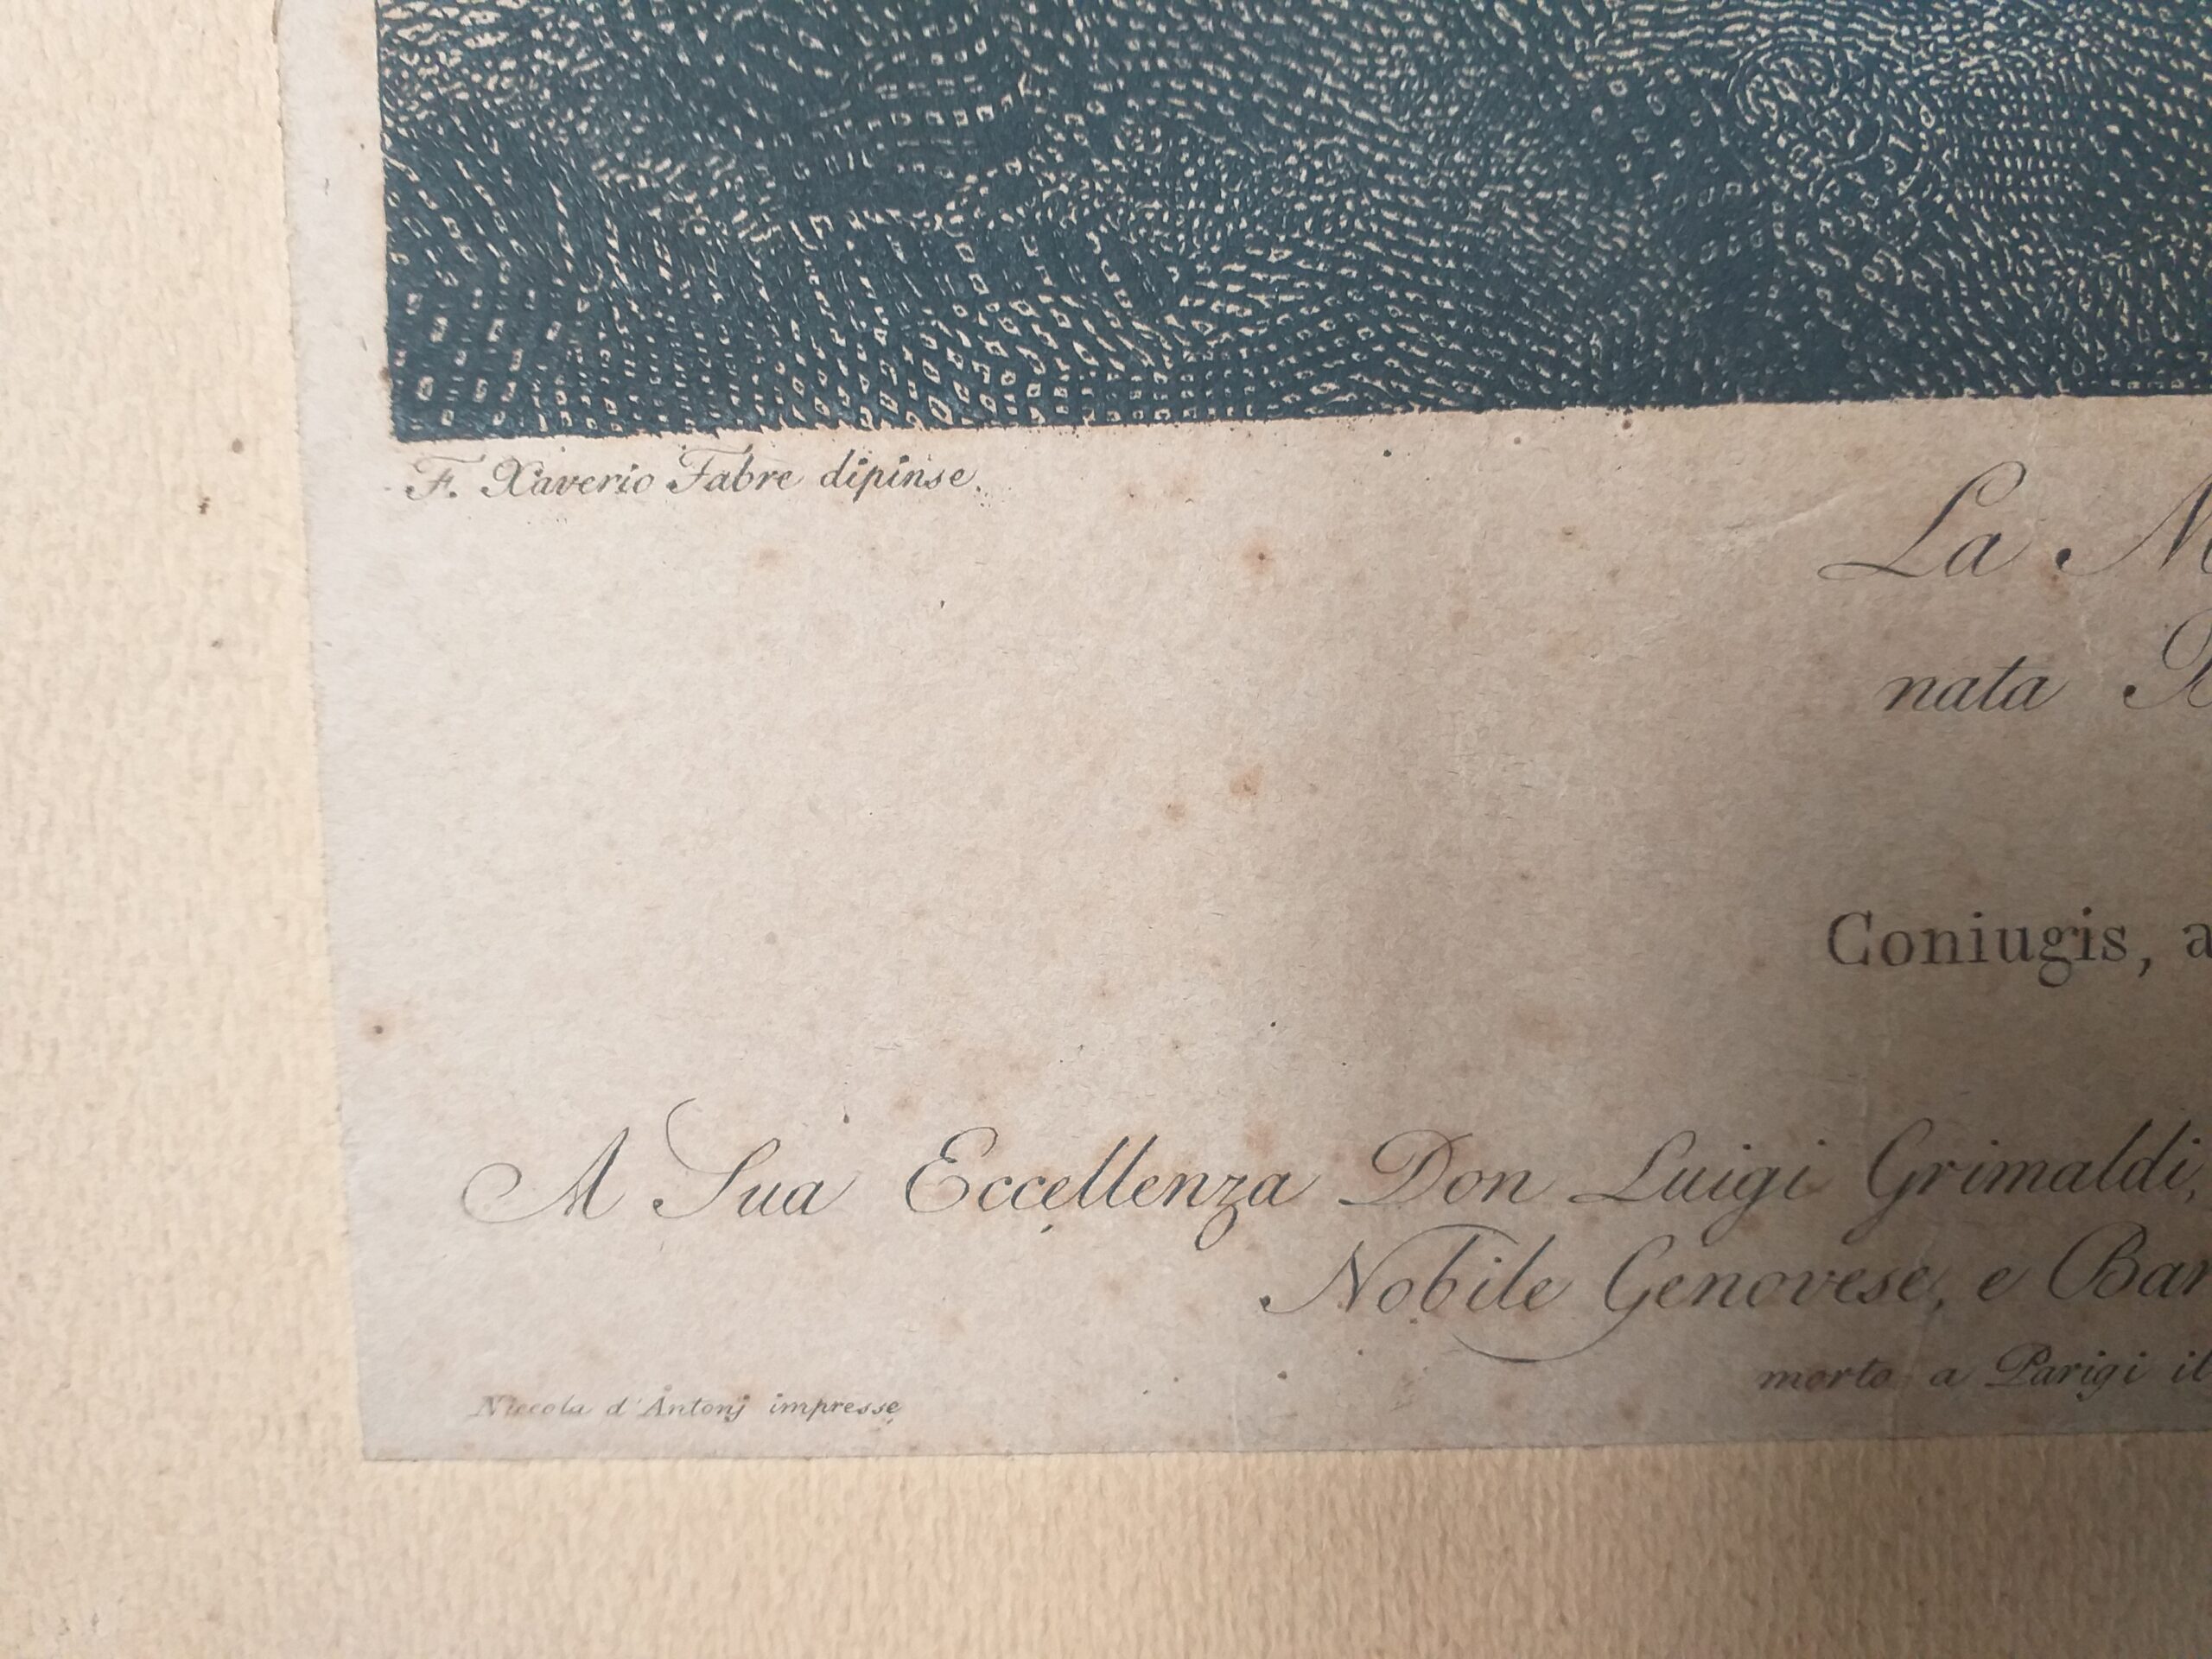 F. Xaverio Fabre dipinse.
La
nata
Coniugis,
A Sua Eccellenza Don Luigi Grimaldi,
Nobile Genovese, e
morto a Parigi il
Niccola d'Antonj impresse